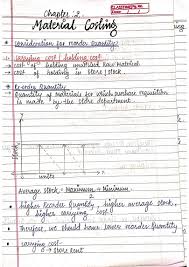 Chapter: 2
Material Costing
• Consideration for reorder Quantity:
1. carrying cost / holding cost
→ cost of holding unutilised Raw material
→ cost of holding in store / stock.
• Re-order Quantity
Quantity of materials for which purchase requisition
is made by the store department.
units
Average stock = Maximum + Minimum
higher Reorder Quantity, higher average stock,
higher carrying cost.
Therefore, we should have lower reorder Quantity
carrying cost
→ store rent